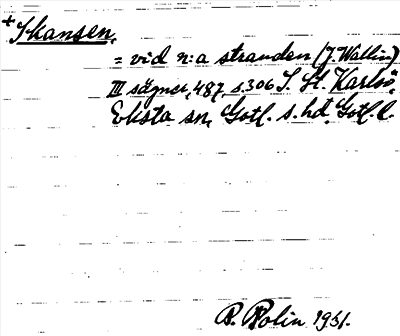 *Skansen,
= vid n:a stranden (J. Wallin)
III sägner, 487, s. 306 I. St. Karlsö,
Eksta sn, Gotl. s. hd, Gotl. l.
1931.